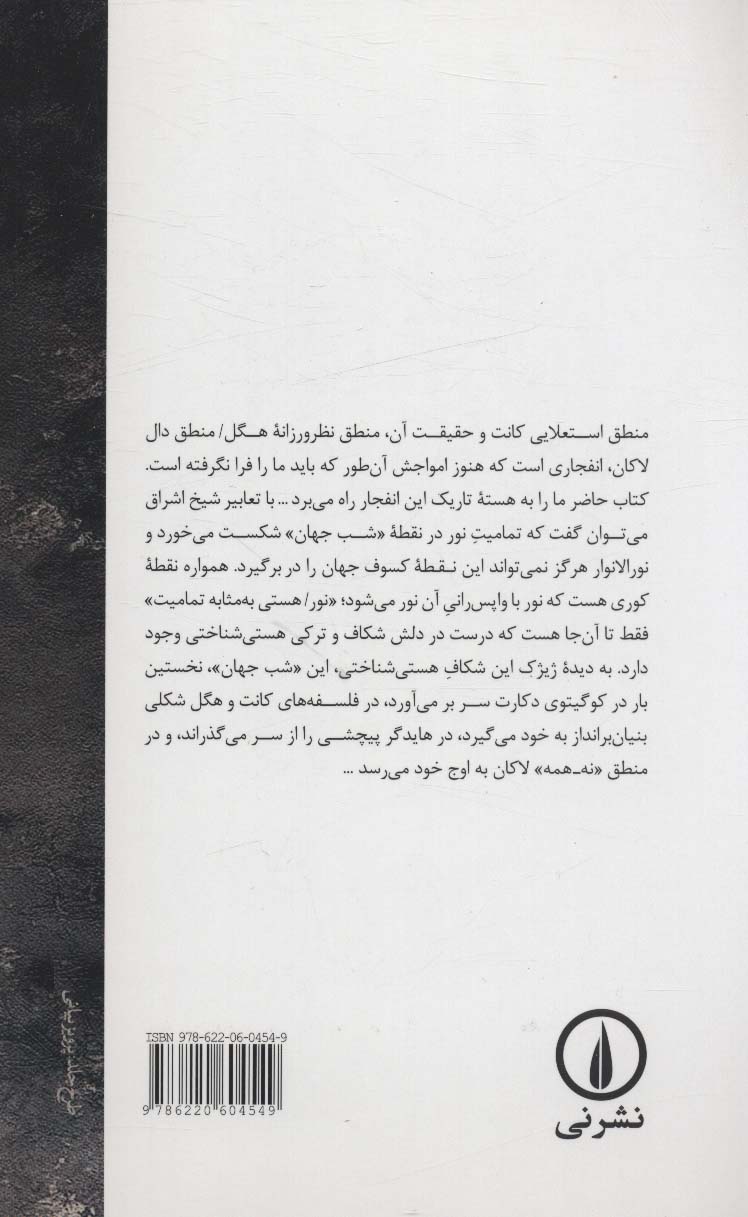 منطق استعلایی کانت و حقیقت آن، منطق نظرورزانهٔ هگل/ منطق دال
لاکان، انفجاری است که هنوز امواجش آن‌طور که باید ما را فرا نگرفته است.
کتاب حاضر ما را به هستهٔ تاریک این انفجار راه می‌برد ... با تعابیر شیخ اشراق
می‌توان گفت که تمامیتِ نور در نقطهٔ «شب جهان» شکست می‌خورد و
نورالانوار هرگز نمی‌تواند این نقطهٔ کسوف جهان را در برگیرد. همواره نقطهٔ
کوری هست که نور با واپس‌رانیِ آن نور می‌شود؛ «نور/ هستی به‌مثابه تمامیت»
فقط تا آن‌جا هست که درست در دلش شکاف و ترکی هستی‌شناختی وجود
دارد. به دیدهٔ ژیژک این شکافِ هستی‌شناختی، این «شب جهان»، نخستین
بار در کوگیتوی دکارت سر بر می‌آورد، در فلسفه‌های کانت و هگل شکلی
بنیان‌برانداز به خود می‌گیرد، در هایدگر پیچشی را از سر می‌گذراند، و در
منطق «نه‌ـ‌همه» لاکان به اوج خود می‌رسد ...
ISBN 978-622-06-0454-9
9 786220 604549
نشرنی
طرح جلد: پرویز بیانی